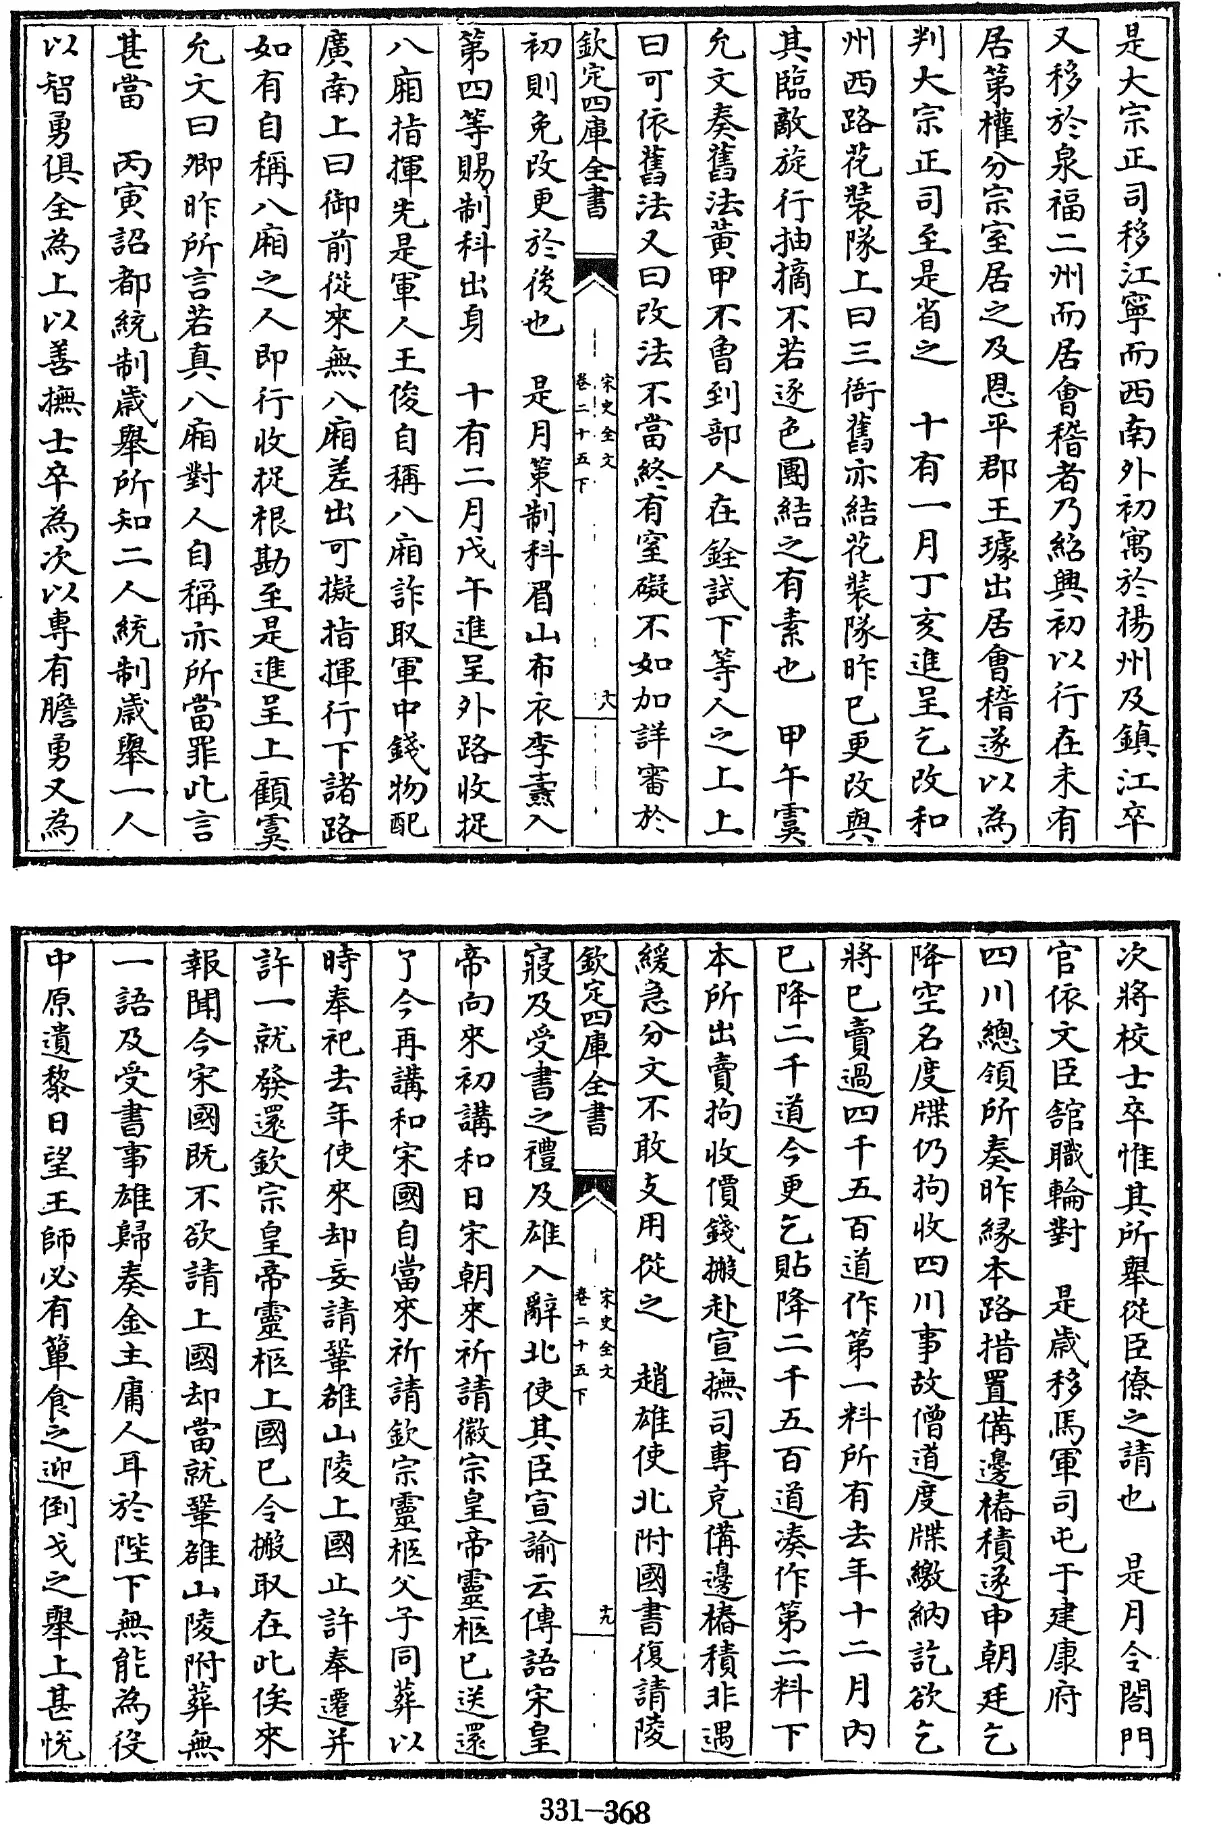 是大宗正司移江寧而西南外初寓於揚州及鎮江卒
又移於泉福二州而居會稽者乃紹興初以行在未有
居第權分宗室居之及恩平郡王璩出居會稽遂以為
判大宗正司至是省之　十有一月丁亥進呈乞改和
州西路花裝隊上曰三衙舊亦結花裝隊昨已更改與
其臨敵旋行抽摘不若逐色團結之有素也　甲午虞
允文奏舊法黄甲不曾到部人在銓試下等人之上上
曰可依舊法又曰改法不當終有窒礙不如加詳審於
欽定四庫全書
宋史全文
卷二十五下
六
初則免改更於後也　是月策制科眉山布衣李壽入
第四等賜制科出身　十有二月戊午進呈外路收捉
八廂指揮先是軍人王俊自稱八廂詐取軍中錢物配
廣南上曰御前從來無八廂差出可擬指揮行下諸路
如有自稱八廂之人即行收捉根勘至是進呈上顧虞
允文曰卿昨所言若真八廂對人自稱亦所當罪此言
甚當　丙寅詔都統制歲舉所知二人統制歲舉一人
以智勇俱全為上以善撫士卒為次以專有膽勇又為
次將校士卒惟其所舉從臣僚之請也　是月令閤門
官依文臣舘職輪對　是歲移馬軍司屯于建康府
四川總領所奏昨緣本路措置備邊樁積遂申朝廷乞
降空名度牒仍拘收四川事故僧道度牒繳納訖欲乞
將已賣過四千五百道作第一料所有去年十二月內
已降二千道今更乞貼降二千五百道湊作第二料下
本所出賣拘收價錢搬赴宣撫司專充備邊樁積非遇
緩急分文不敢支用從之　趙雄使北附國書復請陵
欽定四庫全書
宋史全文
卷二十五下
九
寢及受書之禮及雄入辭北使其臣宣諭云傳語宋皇
帝向來初講和日宋朝來祈請徽宗皇帝靈柩已送還
了今再講和宋國自當來祈請欽宗靈柩父子同葬以
時奉祀去年使來却妄請鞏雒山陵上國止許奉遷并
許一就發還欽宗皇帝靈柩上國已令搬取在此俟來
報聞今宋國既不欲請上國却當就鞏雒山陵附葬無
一語及受書事雄歸奏金主庸人耳於陛下無能為役
中原遺黎日望王師必有簞食之迎倒戈之舉上甚悅
331-368